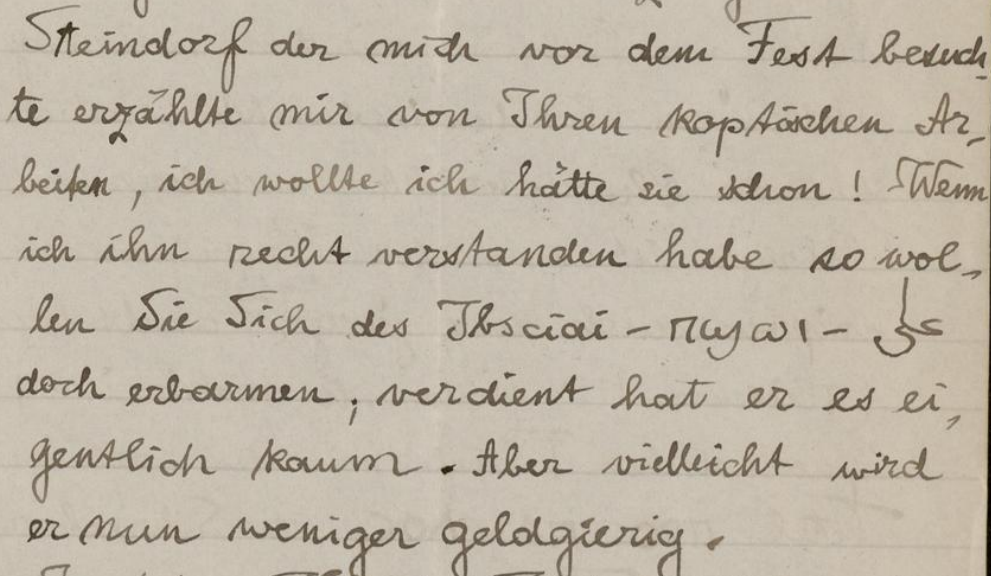 Steindorf der mich vor dem Fest besuch-
te erzählte mir von Ihren koptischen Ar-
beiten, ich wollte ich hätte sie schon! Wenn
ich ihn recht verstanden habe so wol-
len Sie Sich des Ibsciai - ⲡϣⲱⲓ -
doch erbarmen, verdient hat er es ei-
gentlich kaum. Aber vielleicht wird
er nun weniger geldgierig.